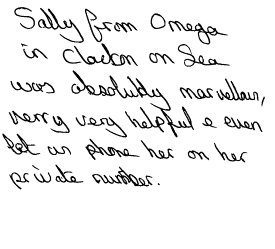 Sally from Omega
in Clacton on Sea
was absolutely marvellous,
verry very helpful & even
let us phone her on her
private number.